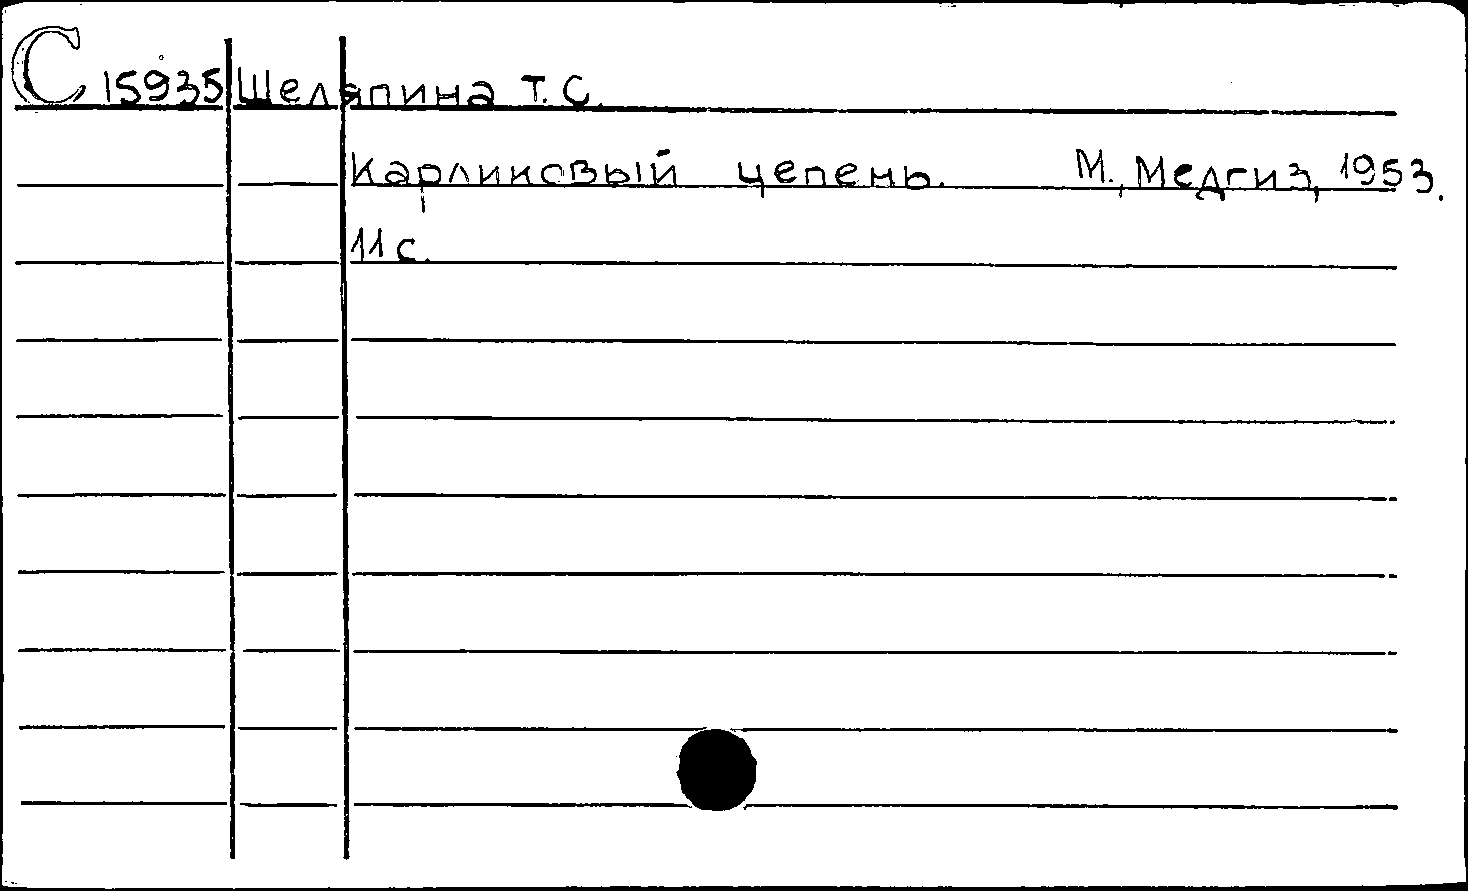 С 15935 Шеляпина Т. С.
Карликовый цепень. М., Медгиз, 1953.
11 с.